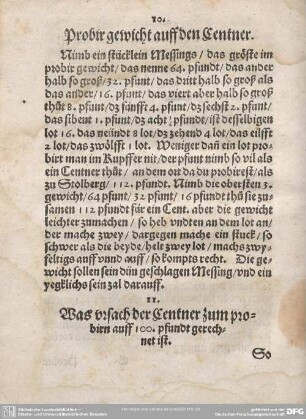 10.
Probir gewicht auff den Centner.
Nimb ein stücklein Messings/ das gröste im
probir gewicht/ das nenne 64. pfundt/ das ander
halb so groß/ 32. pfunt/ das dritt halb so groß als
das ander/ 16. pfunt/ das viert aber halb so groß
thüt 8. pfunt/ dz fünfft 4. pfunt/ dz sechst 2. pfunt/
das sibent 1. pfunt/ dz acht ½ pfundt/ ist desselbigen
lot 16. das neündt 8 lot/ dz zehend 4 lot/ das eilfft
2 lot/ das zwölfft 1 lot. Weniger dañ ein lot pro-
birt man im Kupffer nit/ der pfunt nimb so vil als
ein Centner thüt/ an dem ort da du probirest/ als
zu Stolberg/ 112. pfundt. Nimb die obersten 3.
gewicht/ 64 pfunt/ 32 pfunt/ 16 pfundt thü sie zu-
samen 112 pfundt für ein Cent. aber die gewicht
leichter zumachen/ so heb vndten an dem lot an/
der mache zwey/ dargegen mache ein stuck/ so
schwer als die beyde/ helt zwey lot/ machs zwy-
feltigs auff vnnd auff/ so kompts recht. Die ge-
wicht sollen sein dün geschlagen Messing/ vnd ein
yegklichs sein zal darauff.
11.
Was vrsach der Centner zum pro-
birn auff 100. pfundt gerech-
net ist.
So